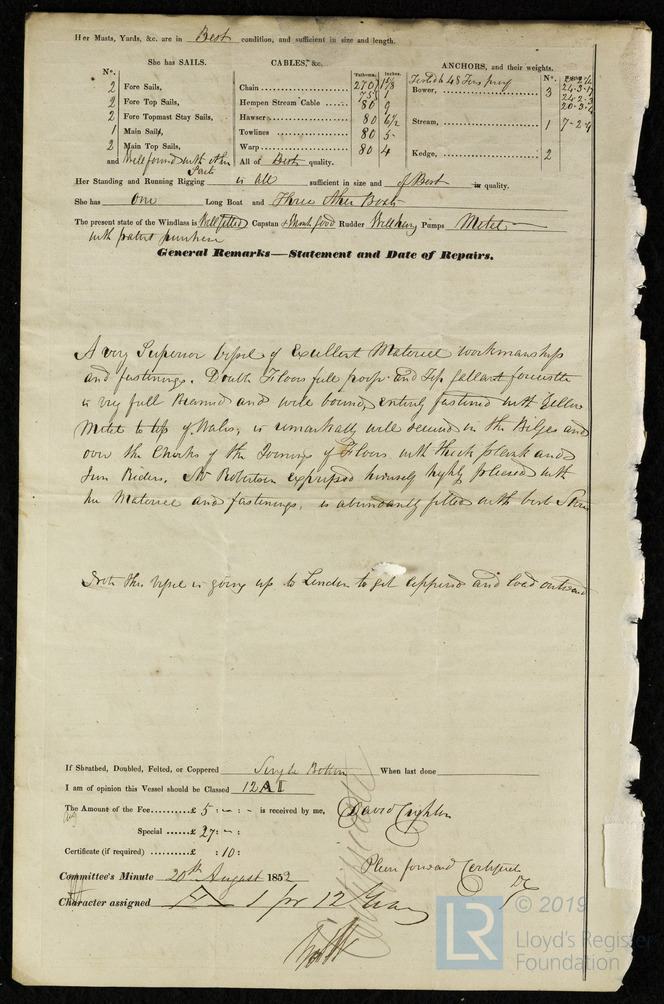 Her Masts, Yards, &c. are in Best condition, and sufficient in size and length.
She has SAILS. CABLES, &c. ANCHORS, and their weights.
N°. Fathoms. Inches. N°.
2 Fore Sails, Chain 270 1 5/8 Bower, 3 24-3-
75 1 24-2-3
2 Fore Top Sails, Hempen Stream Cable 80 9 20-3-4
2 Fore Topmast Stay Sails, Hawser 80 6½ Stream, 1 7-2-9
1 Main Sails, Towlines 80 5-
2 Main Top Sails, Warp 80 4 Kedge, 2
and Well found with other Sails All of Best quality.
Her Standing and Running Rigging is all sufficient in size and of Best in quality.
She has One Long Boat and Three other Boats
The present state of the Windlass is Well fitted Capstan Good Rudder Well hung Pumps Metal
with patent purchase
General Remarks—Statement and Date of Repairs.
A very Superior Vessel of Excellent Material workmanship
and fastenings. Double Floors full poop and Top gallant forecastle
is very full Beamed and well bound, entirely fastened with Yellow
Metal to top of Wales, is remarkably well secured in the Bilges and
over the Chocks of the Joining of Floors with thick plank and
Iron Riders. Mr Robertson expressed himself highly pleased with
the Material and fastenings, is abundantly fitted with best Stores
Note this Vessel is going up to London to get coppered and load outward
If Sheathed, Doubled, Felted, or Coppered Single Bottom When last done
I am of opinion this Vessel should be Classed 12 A1
The Amount of the Fee..........£ 5 : - : - is received by me, David Crighton
Special ......£ 27: - :
Certificate (if required) .........£ : 10:
Please forward Certificate
DC
Committee's Minute 20th August 1852
Character assigned A 1 for 12 Years
LR
© 2019
Lloyd's Register
Foundation